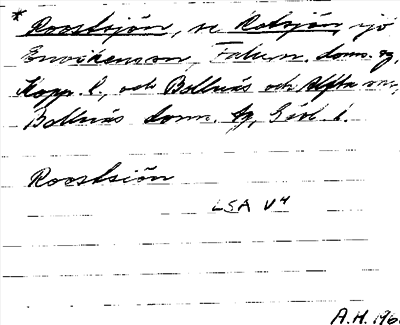 * Roostsjön, se Rotsjön, sjö
Envikensn, Falun. doms. sg,
Kopp. l., och Bollnäs och Alfta snr,
Bollnäs doms. sg, Gävl. l.
Roostsiön
LSA V4
A.H. 196